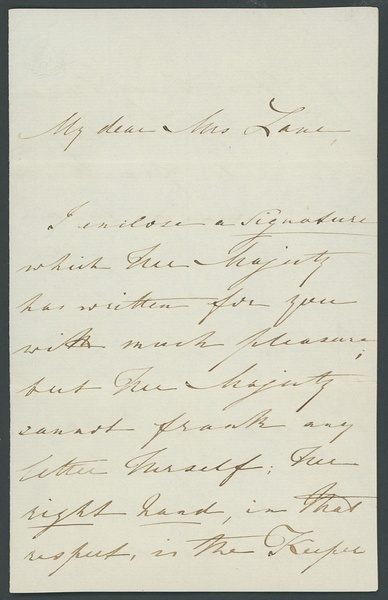 My dear Mrs Lane,
I enclose a signature
which Her Majesty
has written for you
with much pleasure;
but Her Majesty
cannot frank any
letter herself; Her
right hand, in that
respect, is the Keeper